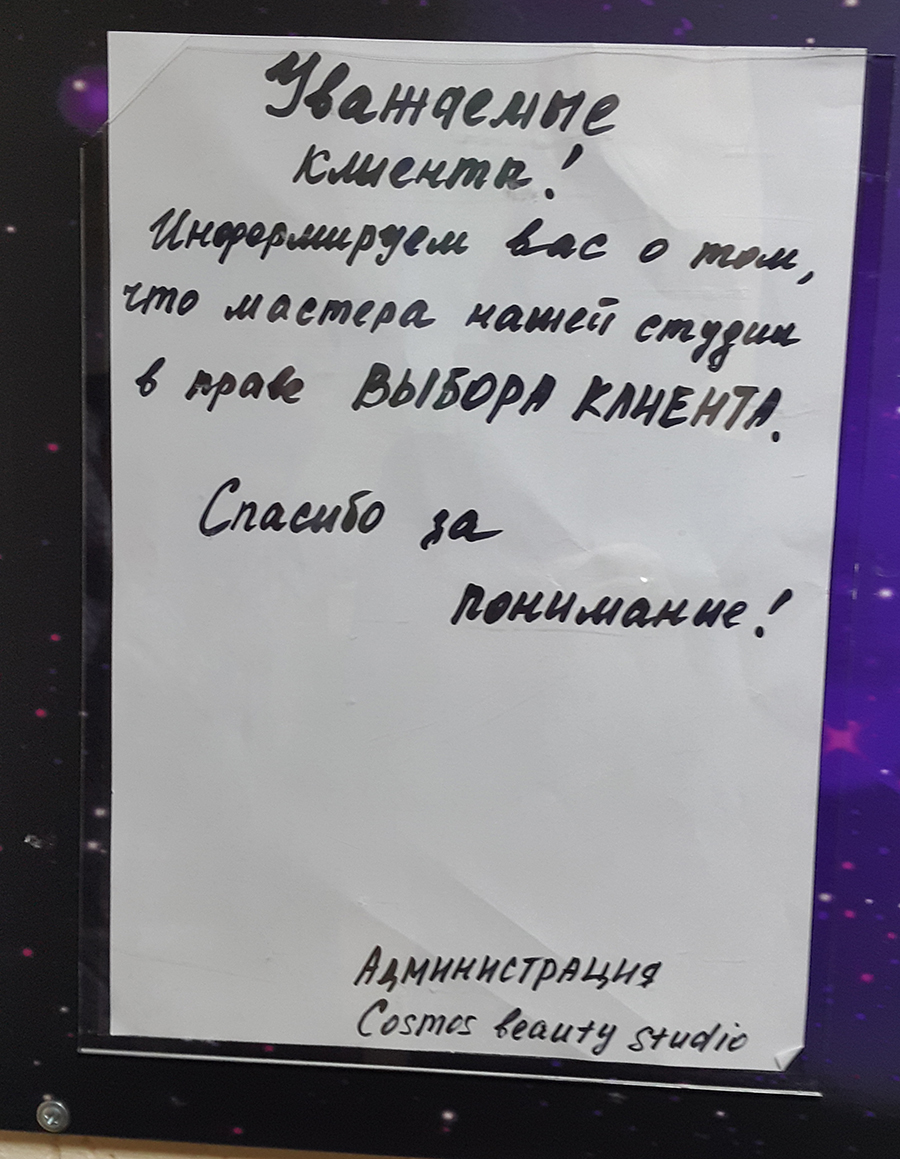 Уважаемые
клиенты!
Информируем вас о том,
что мастера нашей студии
в праве ВЫБОРА КЛИЕНТА.
Спасибо за
понимание!
Администрация
Cosmos beauty studio